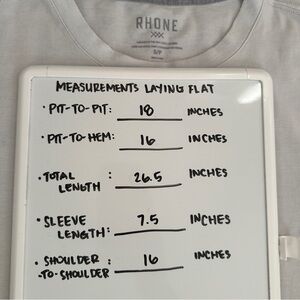 RHONE
S/P
MEASUREMENTS LAYING FLAT
• PIT-TO-PIT: 18 INCHES
• PIT-TO-HEM: 16 INCHES
• TOTAL LENGTH : 26.5 INCHES
• SLEEVE LENGTH: 7.5 INCHES
• SHOULDER -TO-SHOULDER : 16 INCHES